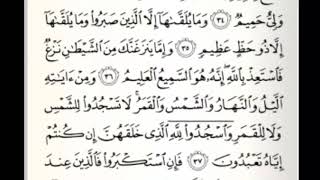 وَلِىٌّ حَمِيمٌ ٣٤ وَمَا يُلَقَّىٰهَآ إِلَّا ٱلَّذِينَ صَبَرُوا۟ وَمَا يُلَقَّىٰهَآ
إِلَّا ذُو حَظٍّ عَظِيمٍ ٣٥ وَإِمَّا يَنزَغَنَّكَ مِنَ ٱلشَّيْطَٰنِ نَزْغٌ
فَٱسْتَعِذْ بِٱللَّهِ إِنَّهُۥ هُوَ ٱلسَّمِيعُ ٱلْعَلِيمُ ٣٦ وَمِنْ ءَايَٰتِهِ
ٱلَّيْلُ وَٱلنَّهَارُ وَٱلشَّمْسُ وَٱلْقَمَرُ لَا تَسْجُدُوا۟ لِلشَّمْسِ
وَلَا لِلْقَمَرِ وَٱسْجُدُوا۟ لِلَّهِ ٱلَّذِى خَلَقَهُنَّ إِن كُنتُمْ
إِيَّاهُ تَعْبُدُونَ ٣٧ فَإِنِ ٱسْتَكْبَرُوا۟ فَٱلَّذِينَ عِندَ